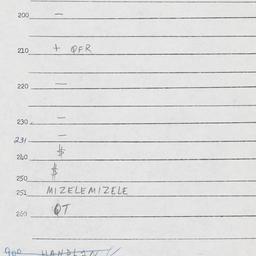 200 —
210 + QFR
220 —
230 —
231 —
240 $
250 $
251 MIZELEMIZELE
260 QT
900 HANDLAN